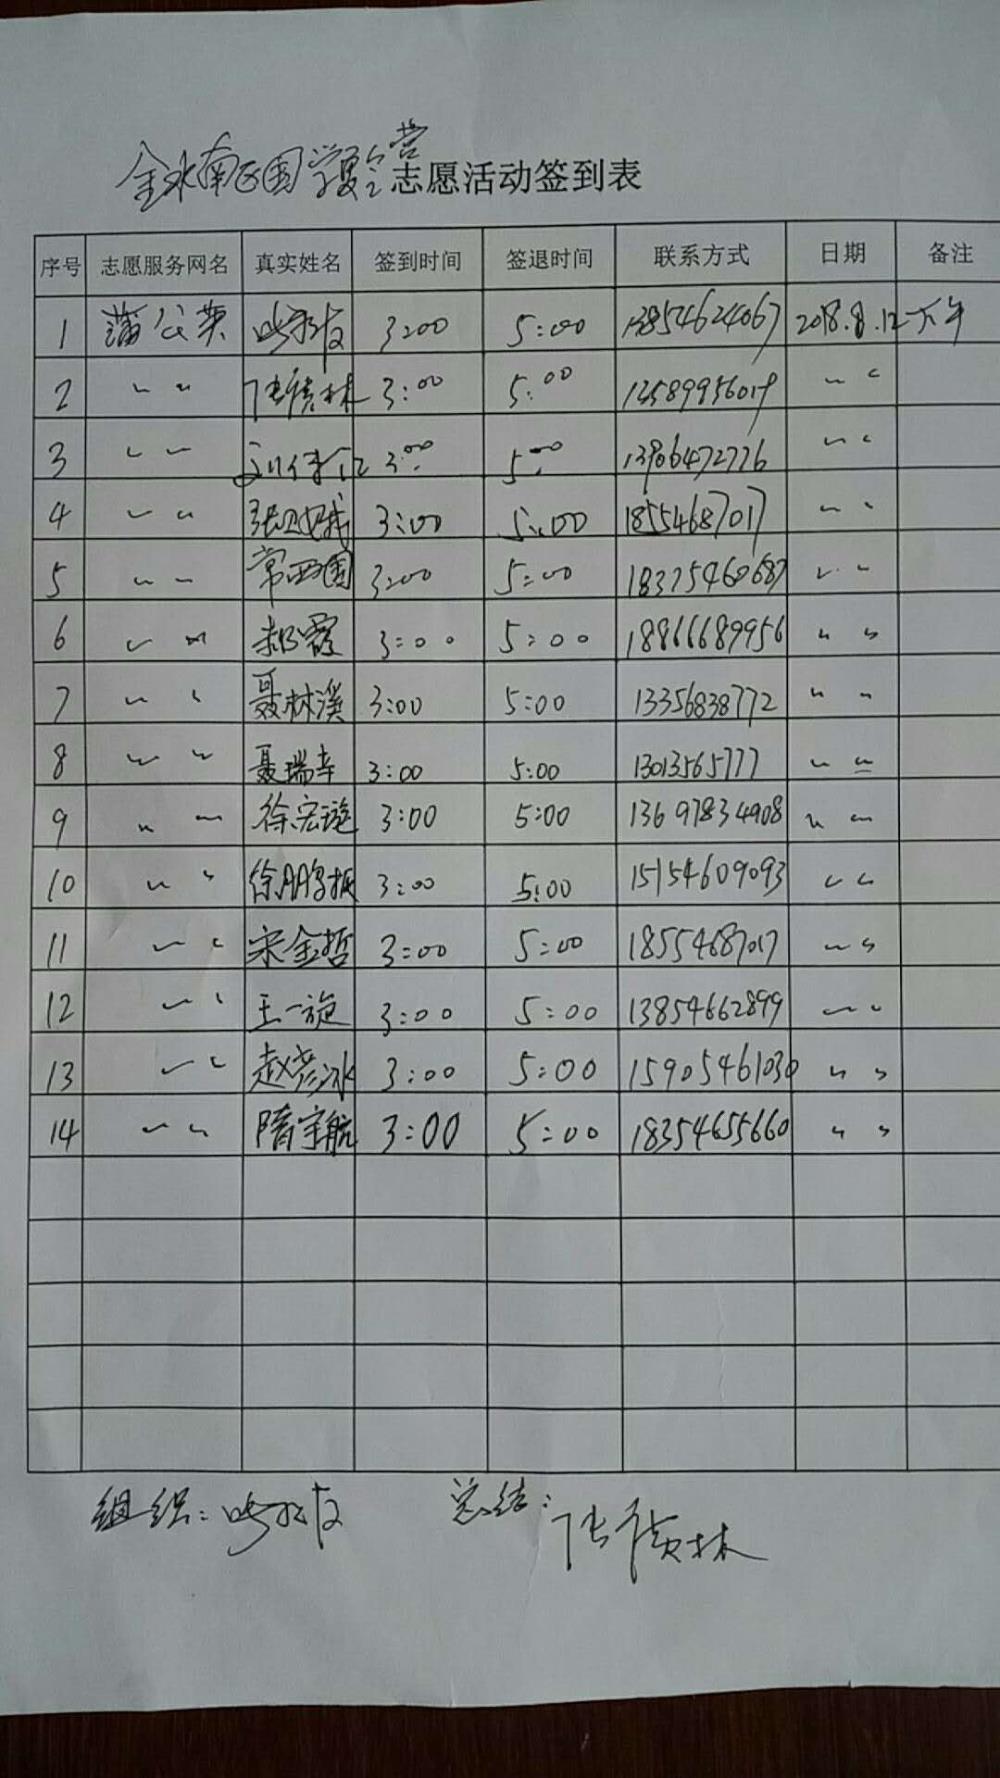 金水南区国学夏令营志愿活动签到表
序号 志愿服务网名 真实姓名 签到时间 签退时间 联系方式 日期 备注
1 蒲公英 3:00 5:00 13854624067 2018.8.12 下午
2 〃 3:00 5:00 〃
3 〃 3:00 5:00 〃
4 〃 3:00 5:00 18554687017 〃
5 〃 常西国 3:00 5:00 18375460687 〃
6 〃 郝霞 3:00 5:00 18866689956 〃
7 〃 聂林溪 3:00 5:00 13356838772 〃
8 〃 聂瑞幸 3:00 5:00 13013565777 〃
9 〃 徐宏璇 3:00 5:00 13697834908 〃
10 〃 徐鹏振 3:00 5:00 15154609093 〃
11 〃 宋金哲 3:00 5:00 18554687017 〃
12 〃 王一旋 3:00 5:00 13854662899 〃
13 〃 赵彦冰 3:00 5:00 15905461030 〃
14 〃 隋宇航 3:00 5:00 18354655660 〃
组织:
总结: